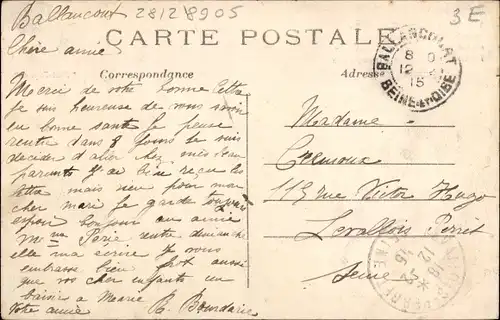 Ballancourt 28128905
3E
CARTE POSTALE
Chère amie
Correspondance
Adresse
BALLANCOURT
8 0
12
15
SEINE-ET-OISE
Merci de votre bonne lettre
Je suis heureuse de vous savoir
en bonne santé Je pense
rentre dans 8 jours Je suis
décider d'aler chez mes beau
parents J'ai bien reçu les
lettre mais rien pour mon
cher mari Je garde toujours
espoir bonjour au amie
Mme rentre dimanche
elle ma écrire Je vous
embrasse bien fort aussi
que vos cher enfants un
baiser a Marie
Votre amie R. Bourdarie
Madame
Cremoux
113 rue Victor Hugo
Levallois Perret
Seine
18
12
15